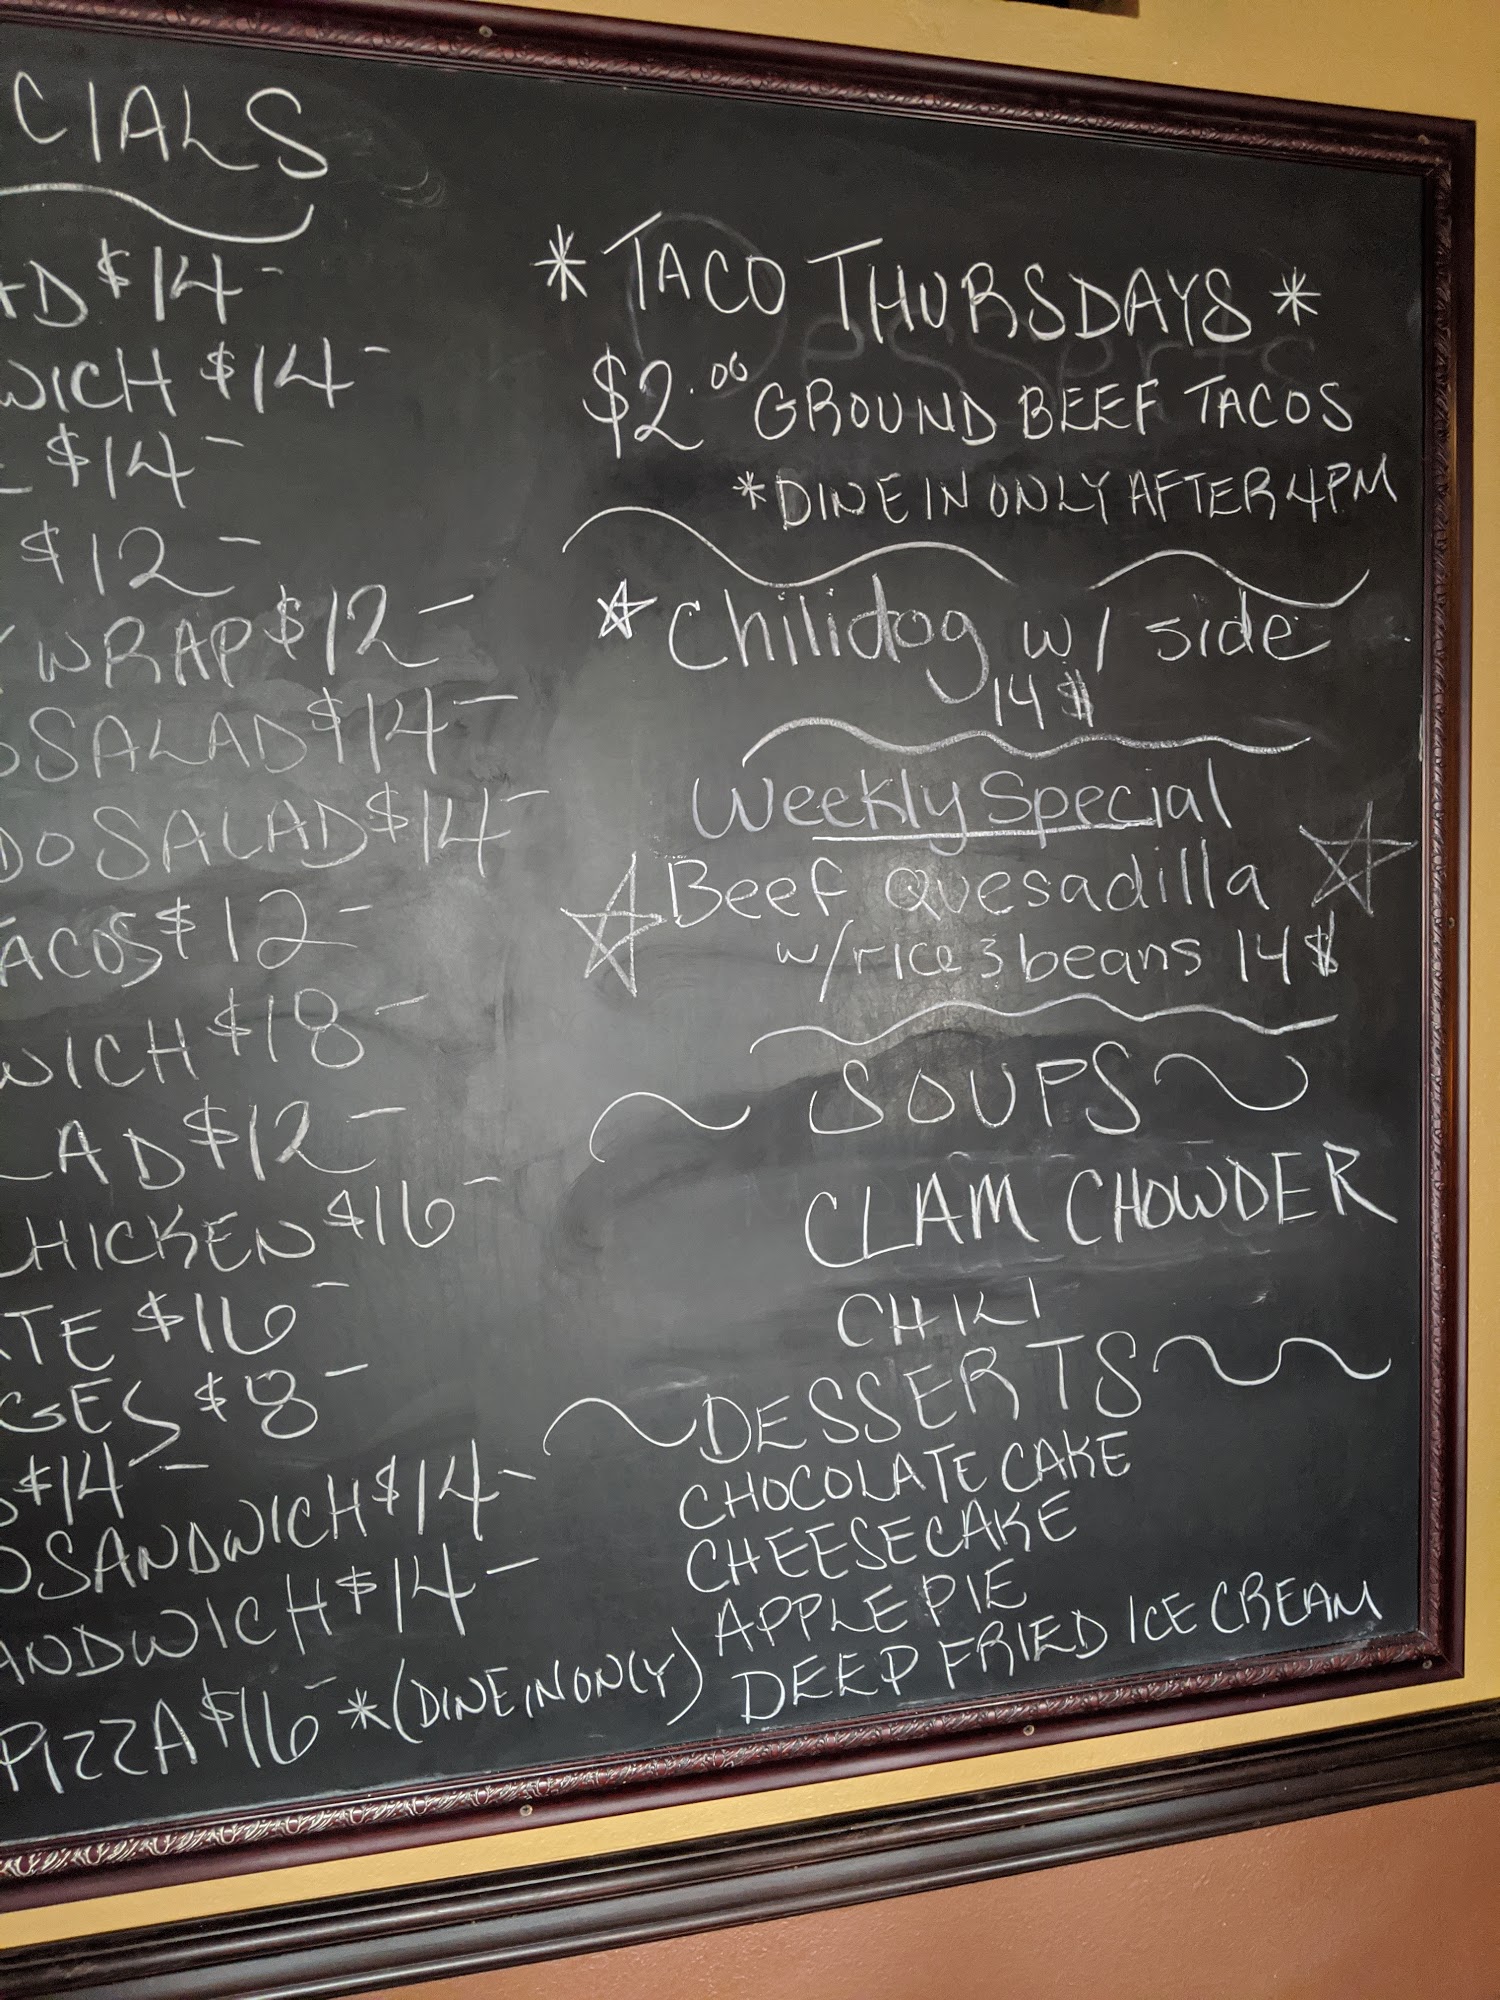 CIALS
AD $14-
WICH $14-
E $14-
$12-
WRAP $12-
O SALAD $14-
DO SALAD $14-
TACOS $12-
WICH $18-
LAD $12-
CHICKEN $16-
ATE $16-
GES $8-
$14-
O SANDWICH $14-
ANDWICH $14-
PIZZA $16- *(DINE IN ONLY)
* TACO THURSDAYS *
Desserts
$2.00 GROUND BEEF TACOS
*DINE IN ONLY AFTER 4PM
Chilidog w/ side
14$
Weekly Special
Beef Quesadilla
w/rice & beans 14$
SOUPS
CLAM CHOWDER
CHILI
DESSERTS
CHOCOLATE CAKE
CHEESECAKE
APPLE PIE
DEEP FRIED ICE CREAM